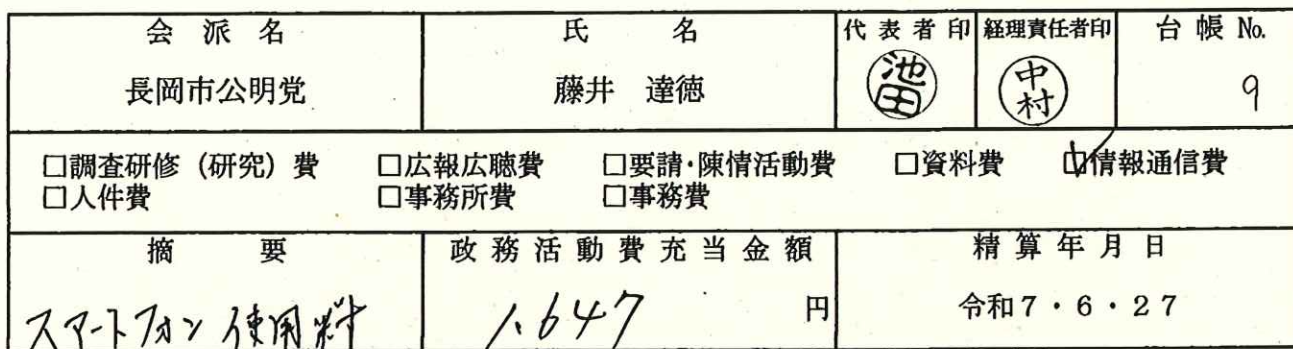 会派名 氏名 代表者印 経理責任者印 台帳 No.
長岡市公明党 藤井 達徳 池田 中村 9
□調査研修(研究)費 □広報広聴費 □要請・陳情活動費 □資料費 ☑情報通信費
□人件費 □事務所費 □事務費
摘要 政務活動費充当金額 精算年月日
スマートフォン使用料 1,647 円 令和7・6・27